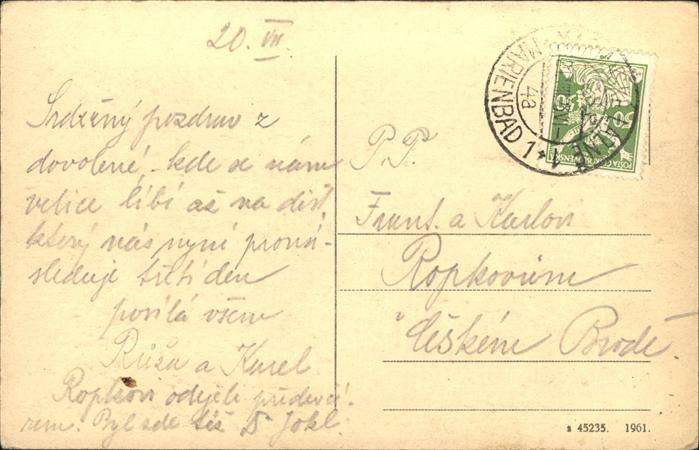 20. VII.
Srdečný pozdrav z
dovolené, kde se nám
velice líbí až na déšť
který nás nyníproná-
sleduje též i den
posílá všem
Růža a Karel
Ropkovi odjeli předevčí-
rem. Byl zde též D Jokl.
P. P.
Frant. a Karlovi
Ropkovým
v Českém Brodě
MARIENBAD 1
4a
POŠTA ČESKOSLOVENSKÁ
s 45235. 1961.